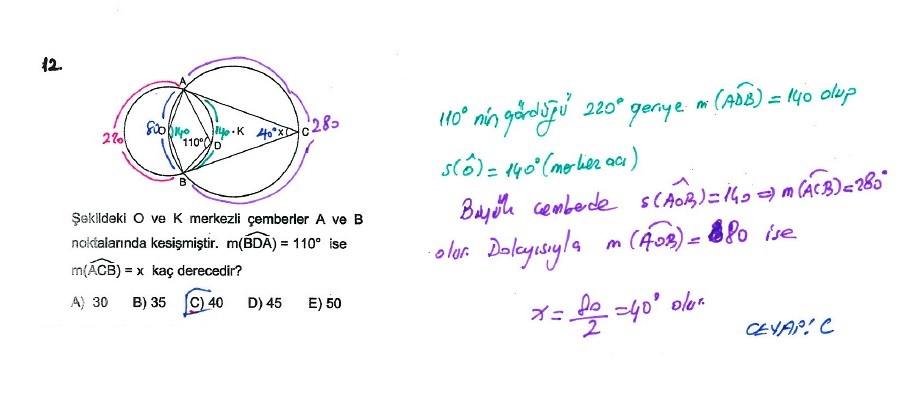 12.
A
220
80
O
140
140
K
110°
D
40°
x
C
280
B
Şekildeki O ve K merkezli çemberler A ve B
noktalarında kesişmiştir. m(BDA) = 110° ise
m(ACB) = x kaç derecedir?
A) 30 B) 35 C) 40 D) 45 E) 50
110° nin gördüğü 220° geriye m(ADB) = 140 olup
s(O) = 140° (merkez açı)
Büyük çemberde s(AOB) = 140 ⇒ m(ACB) = 280°
olur. Dolayısıyla m(AOB) = 80 ise
x = 80/2 = 40° olur.
CEVAP: C